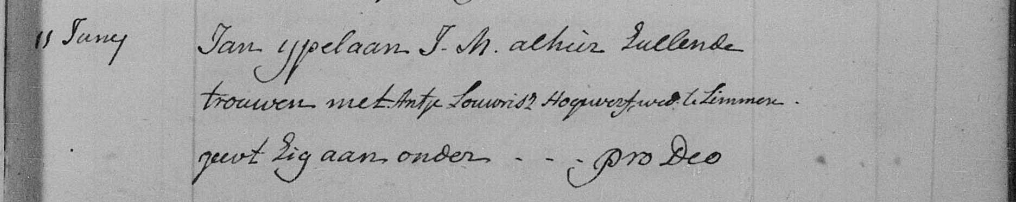 11 Juny Jan ypelaan J. M. alhier Zullende
trouwen met Antje Louwrisz Hogwerf, wed. te Limmen.
geevt Zig aan onder - - - pro Deo